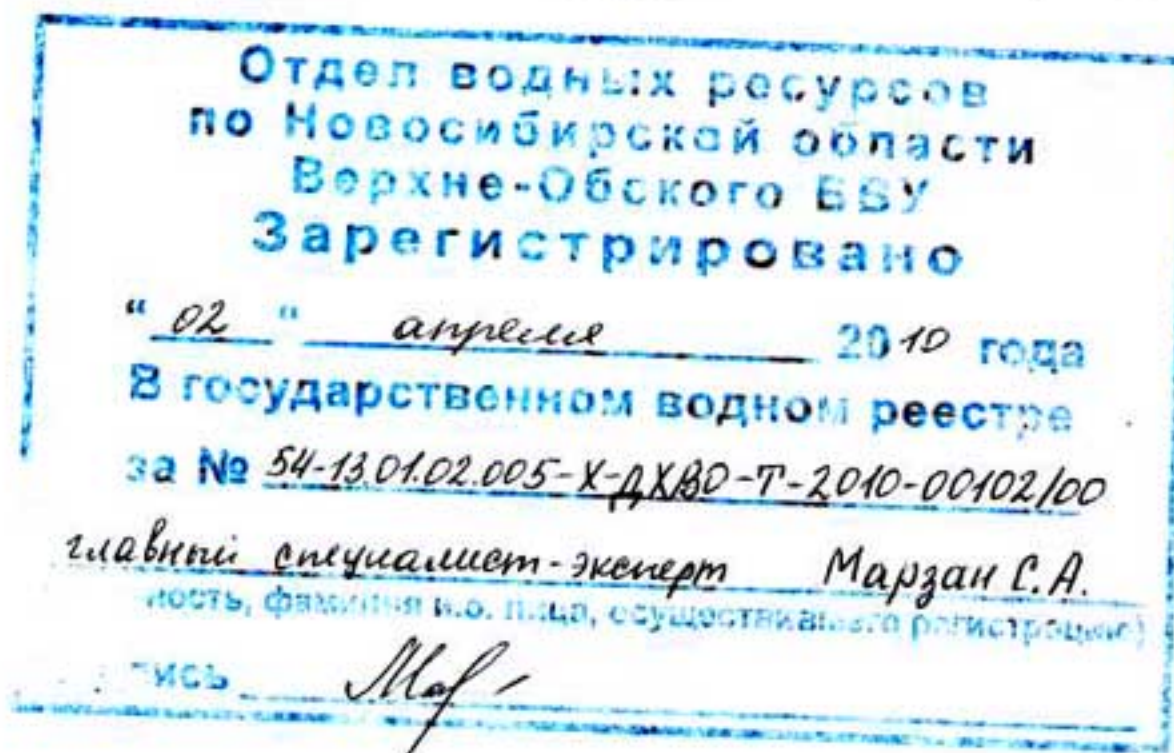 Отдел водных ресурсов
по Новосибирской области
Верхне-Обского БВУ
Зарегистрировано
" 02 " апреля 2010 года
В государственном водном реестре
за № 54-13.01.02.005-Х-ДХВО-Т-2010-00102/00
главный специалист-эксперт Марзан С.А.
ность, фамилия и.о. лица, осуществившего регистрацию)
пись